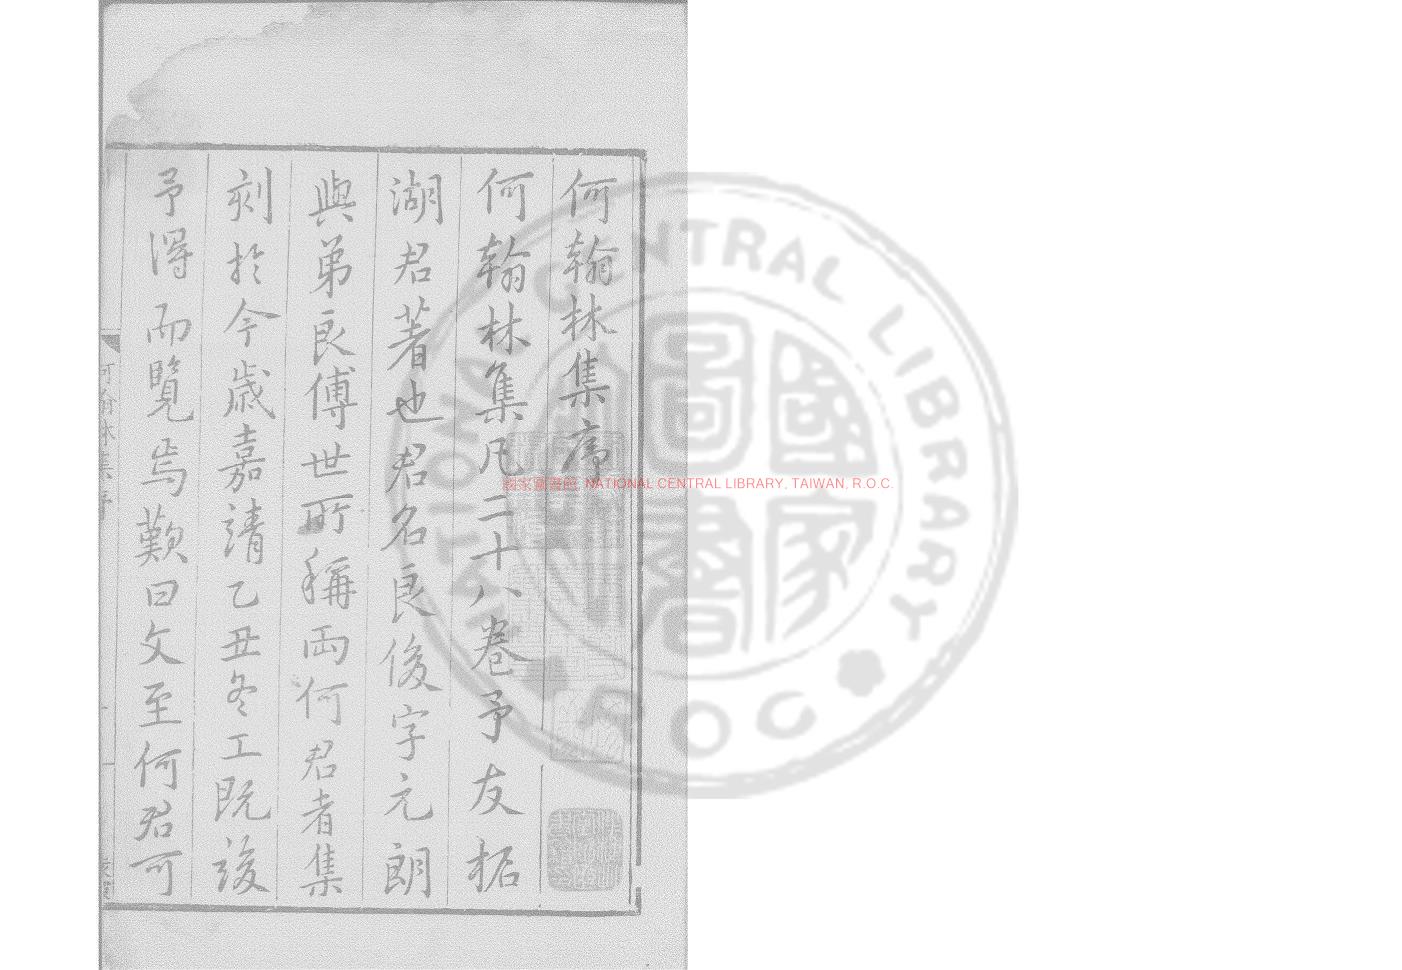 何翰林集序
何翰林集凡二十八卷予友柘
湖君著也君名良俊字元朗
與弟良傅世所稱兩何君者集
刻於今歲嘉靖乙丑冬工既竣
予得而覽焉歎曰文至何君可
何翰林集序
國家圖書館 NATIONAL CENTRAL LIBRARY, TAIWAN, R.O.C.
NATIONAL CENTRAL LIBRARY
R O C
國家圖書